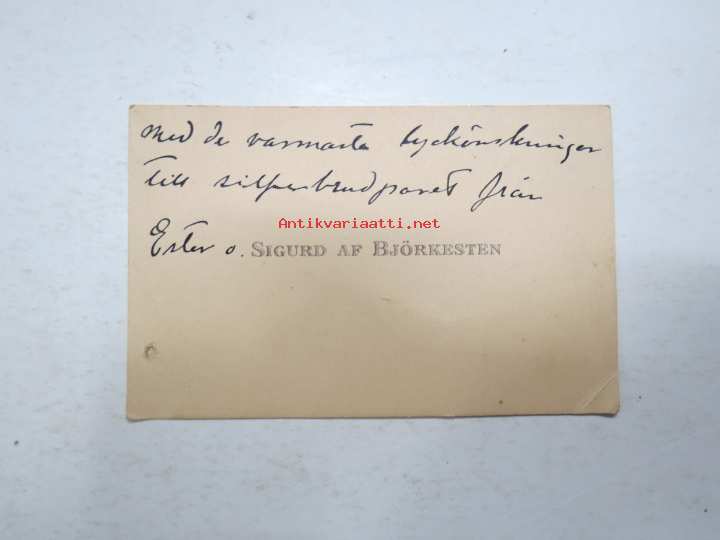 med de varmaste lyckönskningar
till silfverbrudparet från
Antikvariaatti.net
Ester o. SIGURD AF BJÖRKESTEN